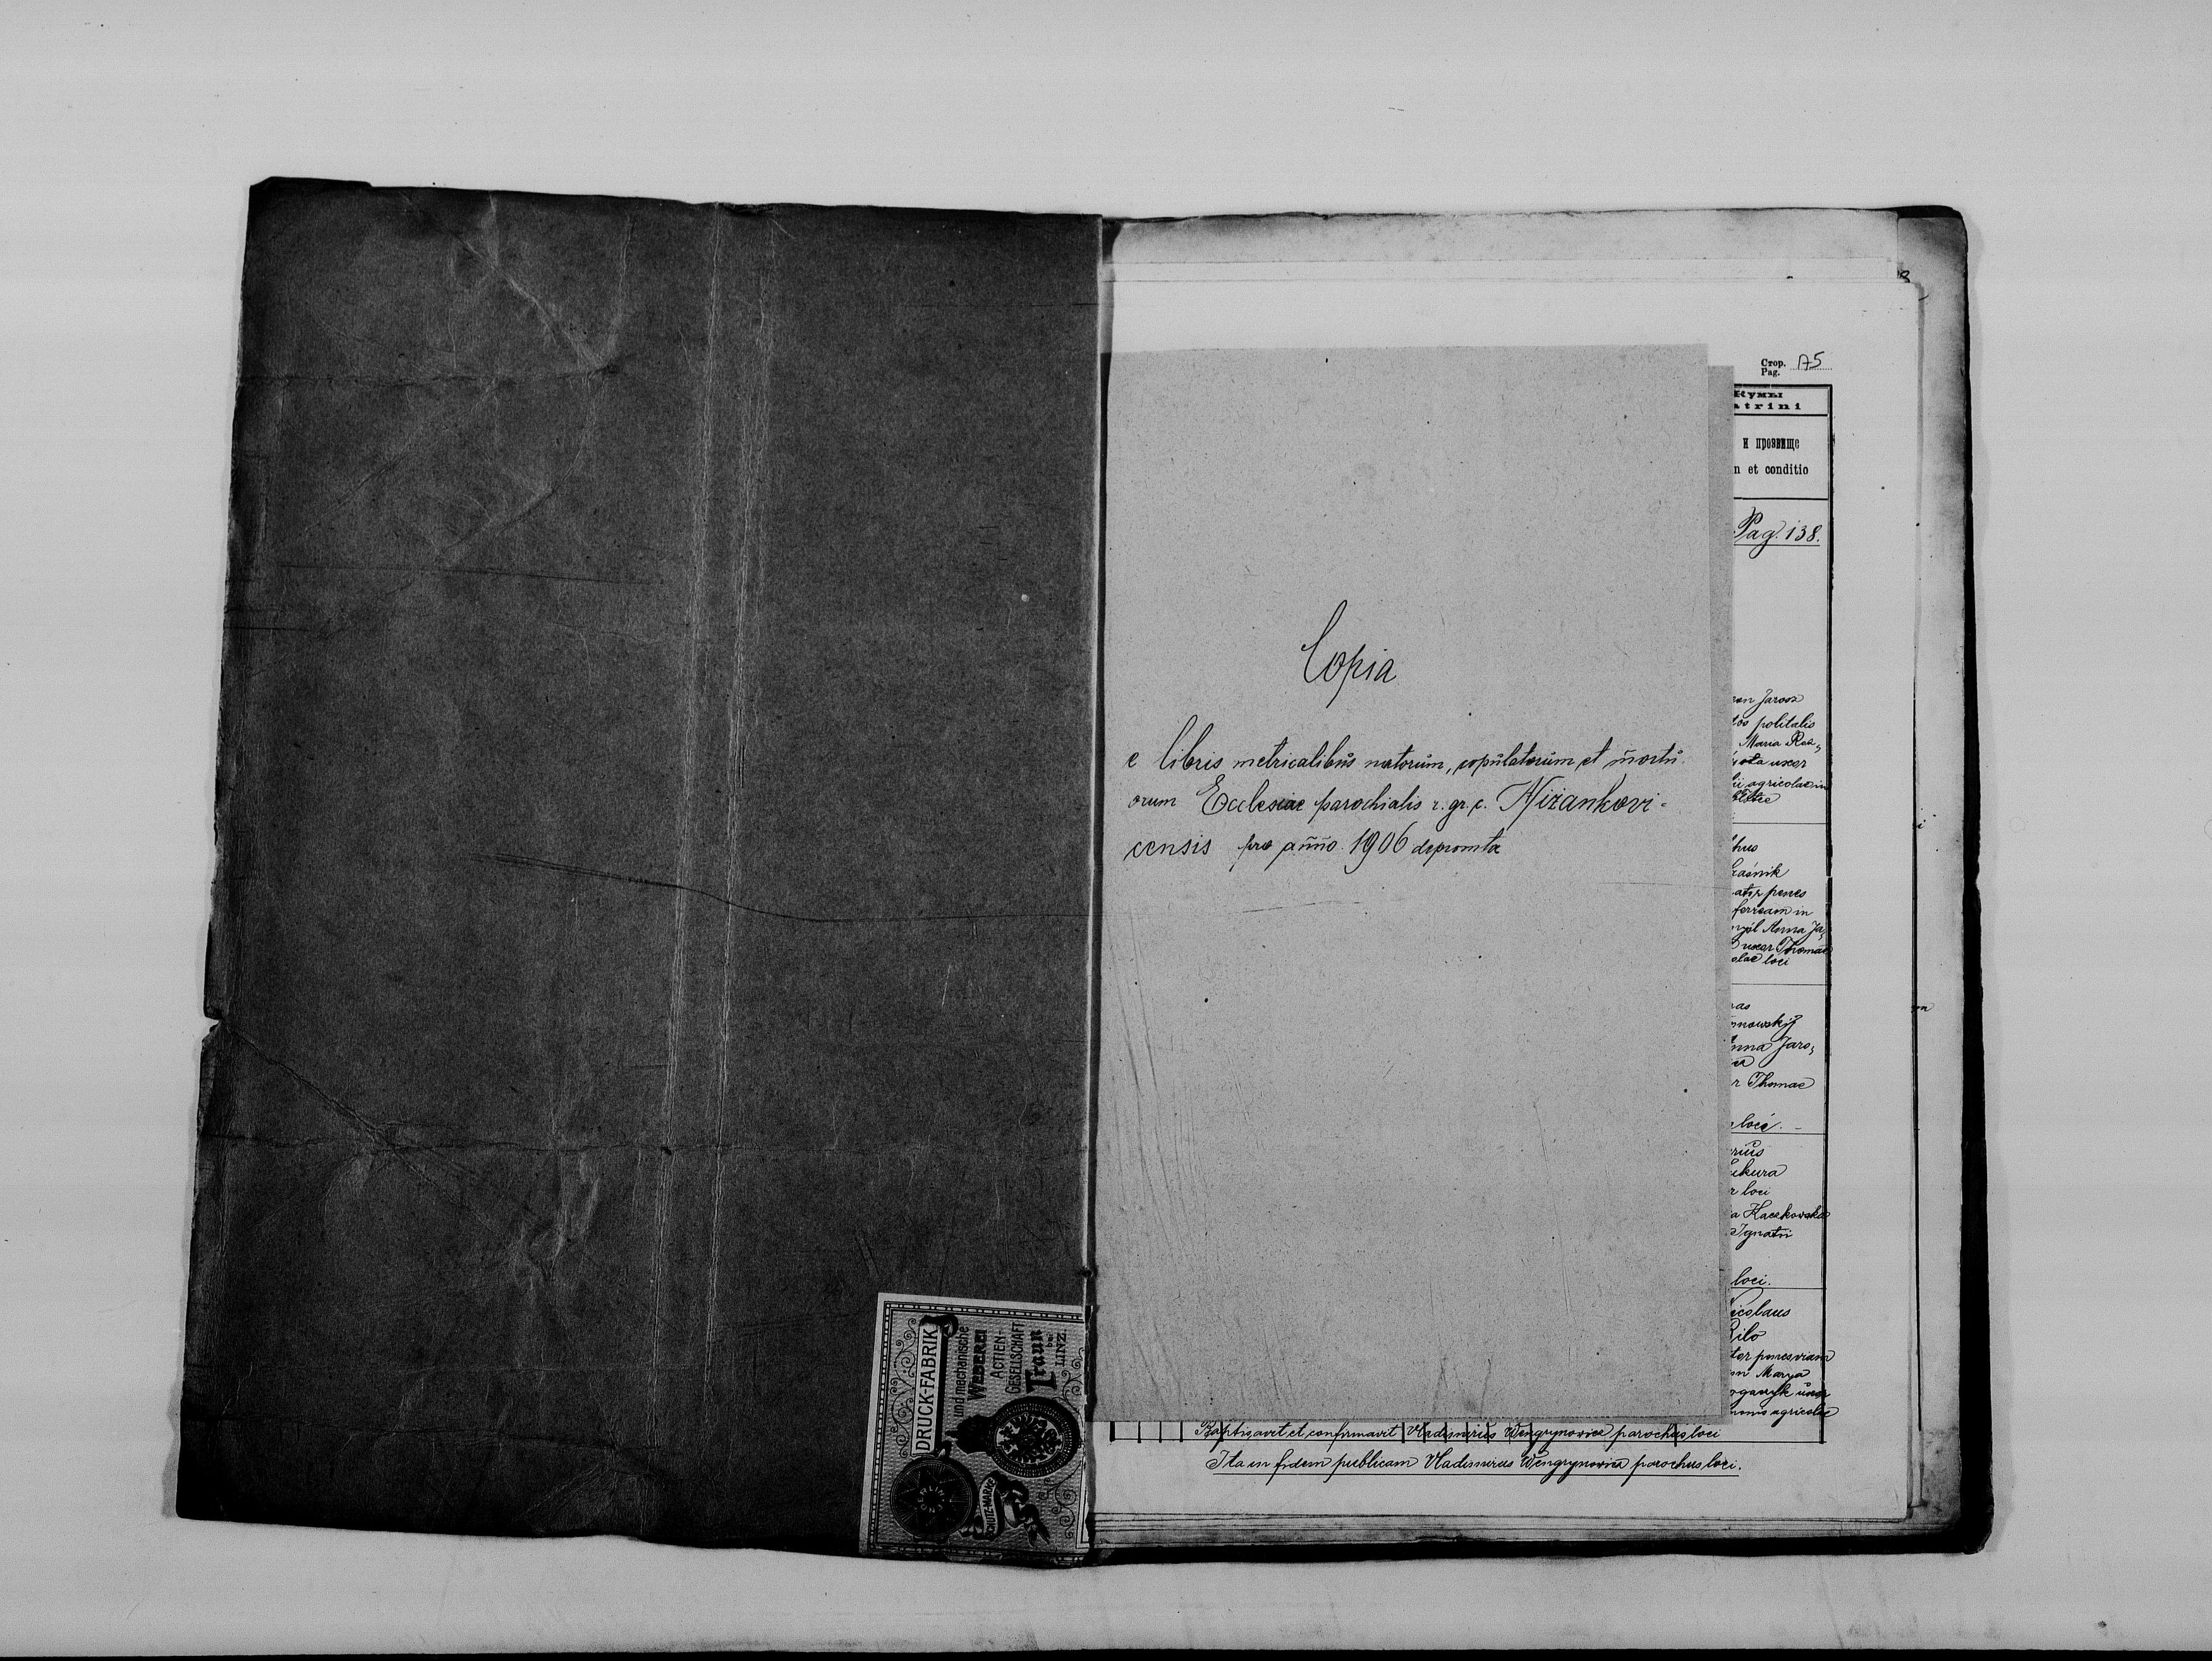 Copia
e libris metricalibus natorum, copulatorum et mortu
orum Ecclesiae parochialis r. gr. c. Niżankovi-
censis pro anno 1906 depromta
Стор.
Pag. 175
Кумы
atrini
и прозвище
n et conditio
Pag. 138.
Jarosz
politalis
Maria Roz„
uxor
agricolae in
thus
atir penes
ferream in
Anna Ja„
uxor Thomae
olae loci
Anna Jaro„
r Thomae
loci. –
rius
ukura
r loci
a Haczkowska
Ignatii
loci.
icolaus
Bilo
ter penes viam
Marya
uxor
agricolae
Baptisavit et confirmavit Vladimirus Wengrynovicz parochus loci
Ita in fidem publicam Vladimirus Wengrynovicz parochus loci.
DRUCK-FABRIK
und mechanische
WEBEREI
ACTIEN-
GESELLSCHAFT
Traun
bei
LINZ.
SCHUTZ-MARKE
BERLIN